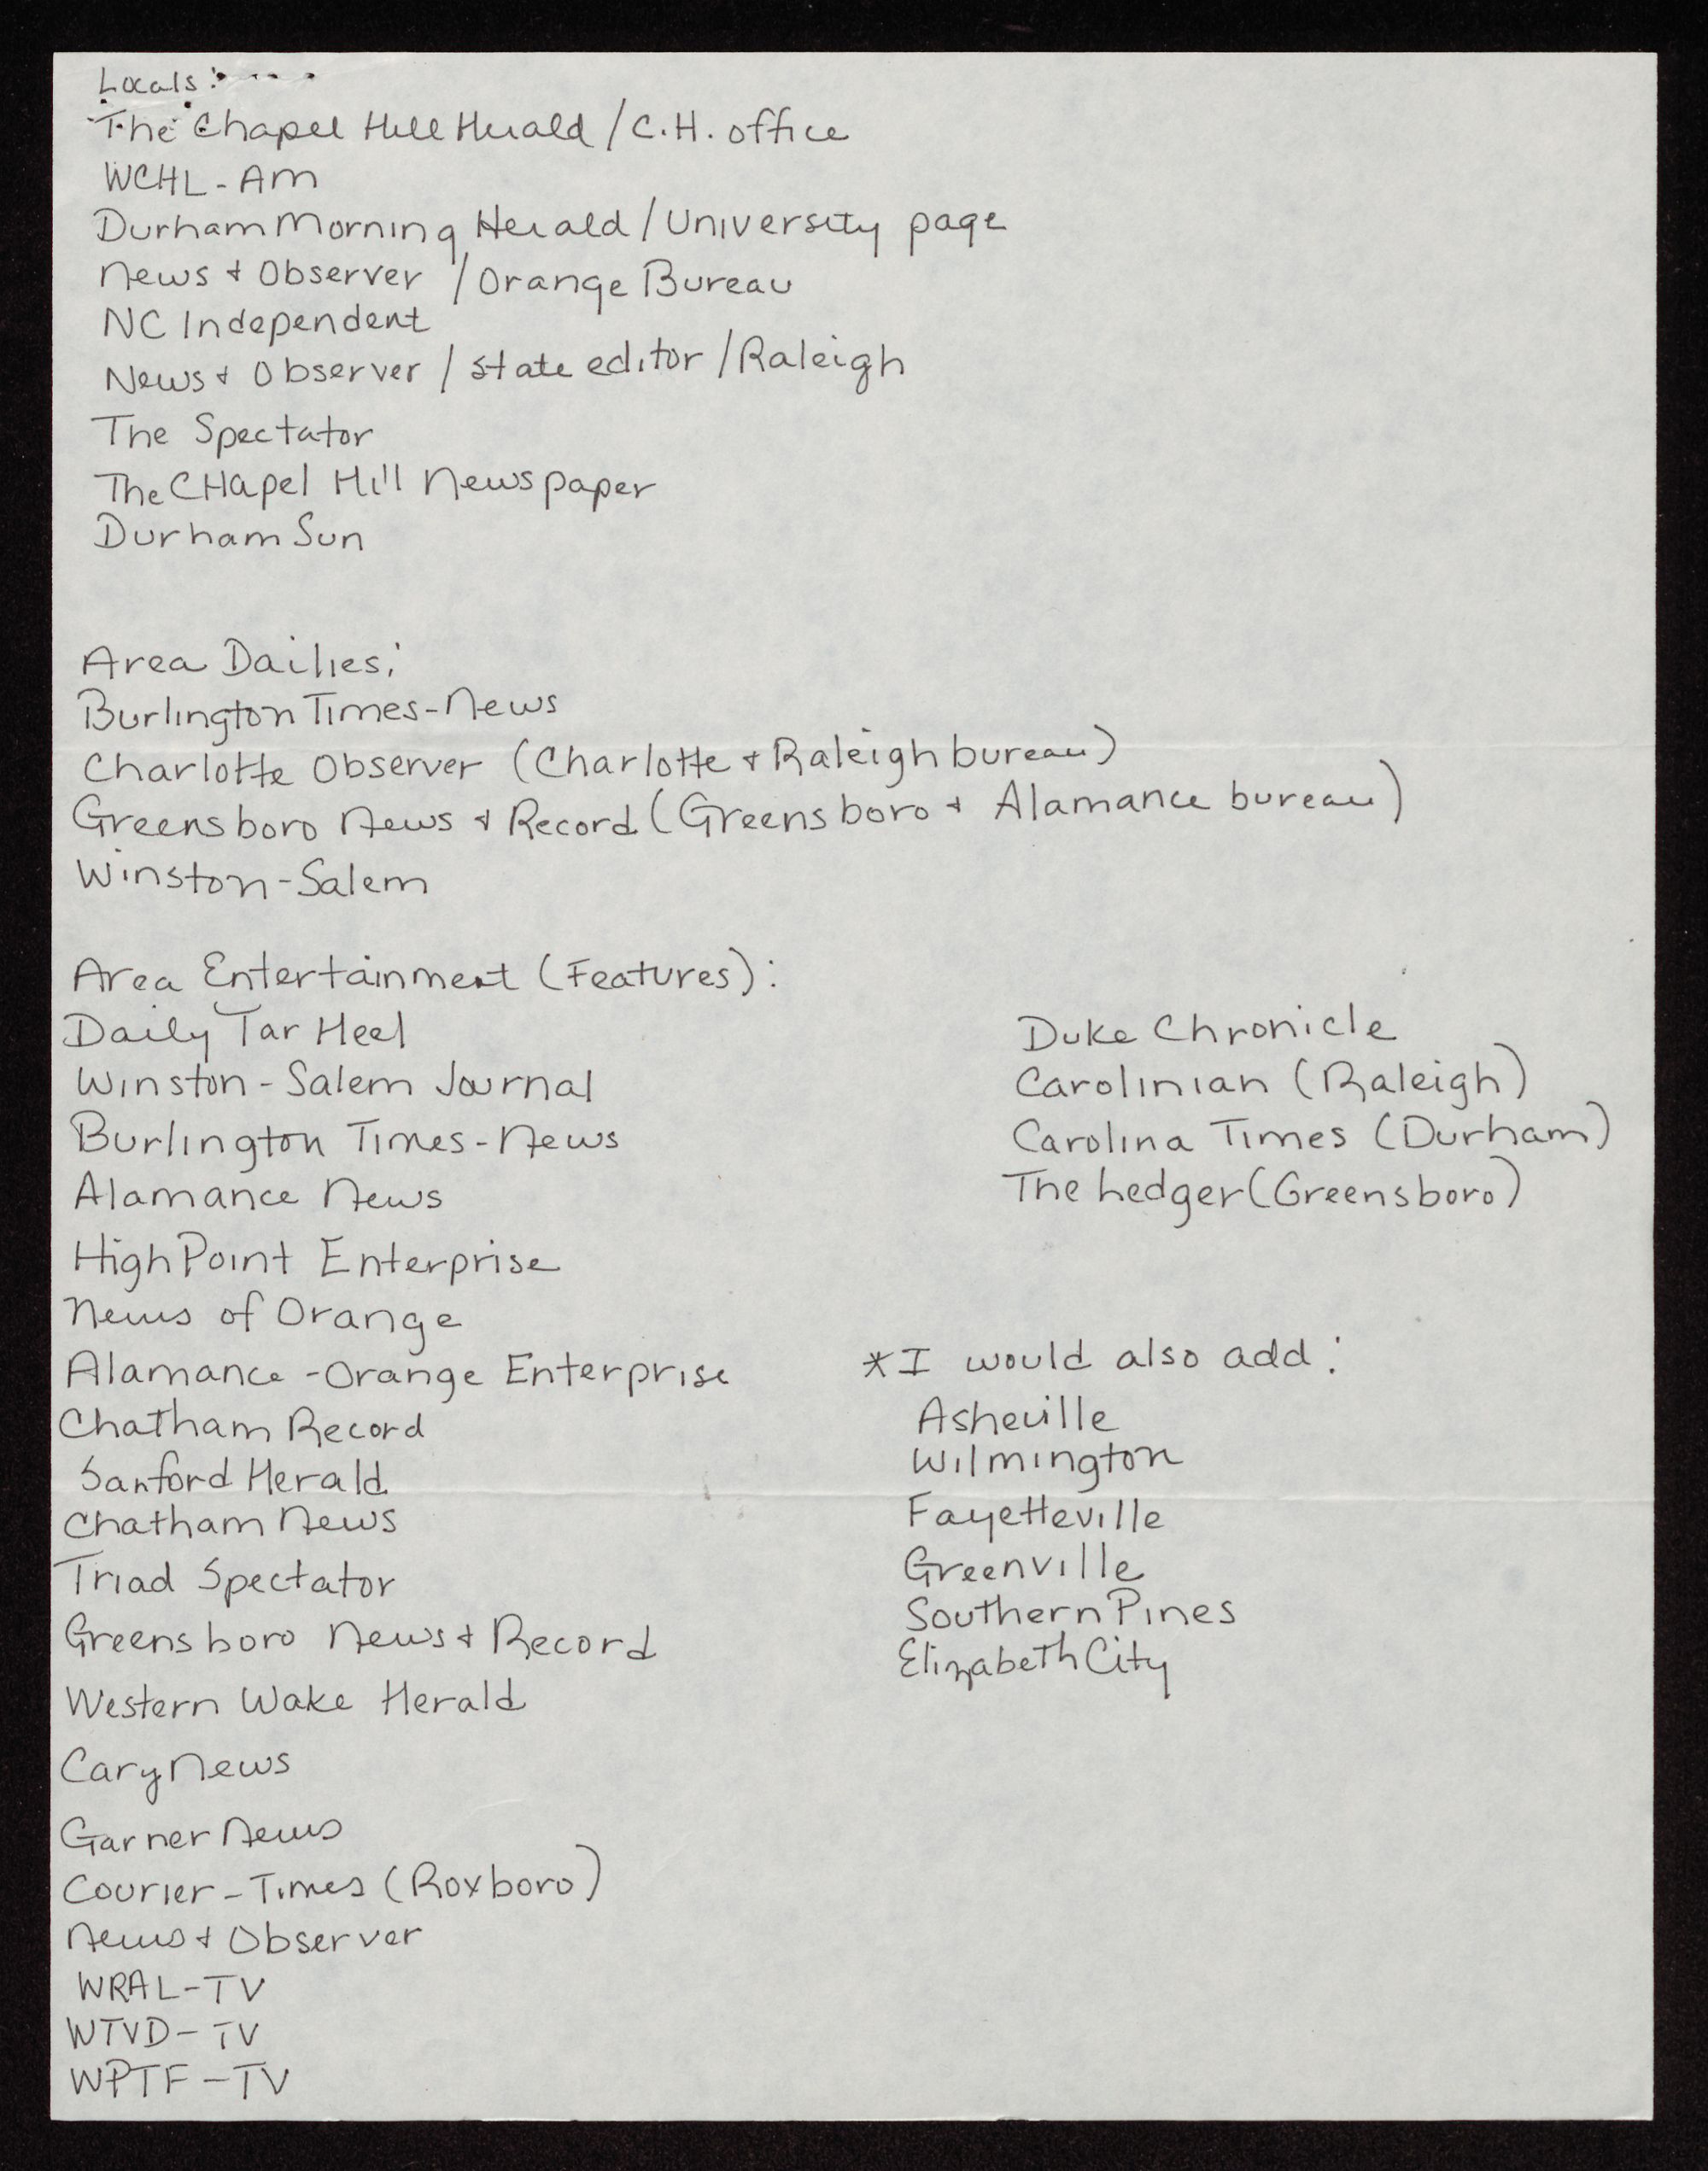 Locals:
The Chapel Hill Herald / C.H. office
WCHL-AM
Durham Morning Herald / University page
News & Observer / Orange Bureau
NC Independent
News & Observer / state editor / Raleigh
The Spectator
The CHapel Hill Newspaper
Durham Sun
Area Dailies:
Burlington Times-News
Charlotte Observer (Charlotte & Raleigh bureau)
Greensboro News & Record (Greensboro & Alamance bureau)
Winston-Salem
Area Entertainment (Features):
Daily Tar Heel
Winston-Salem Journal
Burlington Times-News
Alamance News
High Point Enterprise
News of Orange
Alamance-Orange Enterprise
Chatham Record
Sanford Herald
Chatham News
Triad Spectator
Greensboro News & Record
Western Wake Herald
Cary News
Garner News
Courier-Times (Roxboro)
News & Observer
WRAL-TV
WTVD-TV
WPTF-TV
Duke Chronicle
Carolinian (Raleigh)
Carolina Times (Durham)
The hedger (Greensboro)
*I would also add:
Asheville
Wilmington
Fayetteville
Greenville
Southern Pines
Elizabeth City